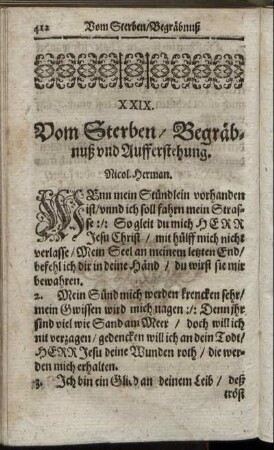 412 Vom Sterben/Begräbnuß
XXIX.
Vom Sterben/ Begräb-
nuß vnd Aufferstehung.
Nicol. Herman.
WEnn mein Stündlein vorhanden
ist/vnnd ich soll fahrn mein Stras-
se :/: So gleit du mich HERR
Jesu Christ/ mit hülff mich nicht
verlasse/ Mein Seel an meinem letzten End/
befehl ich dir in deine Händ/ du wirst sie mir
bewahren.
2. Mein Sünd mich werden krencken sehr/
mein Gwissen wird mich nagen :/: Denn jhr
sind viel wie Sand am Meer/ doch will ich
nit verzagen/ gedencken will ich an dein Todt/
HERR Jesu deine Wunden roth/ die wer-
den mich erhalten.
3. Ich bin ein Glid an deinem Leib/ deß
tröst